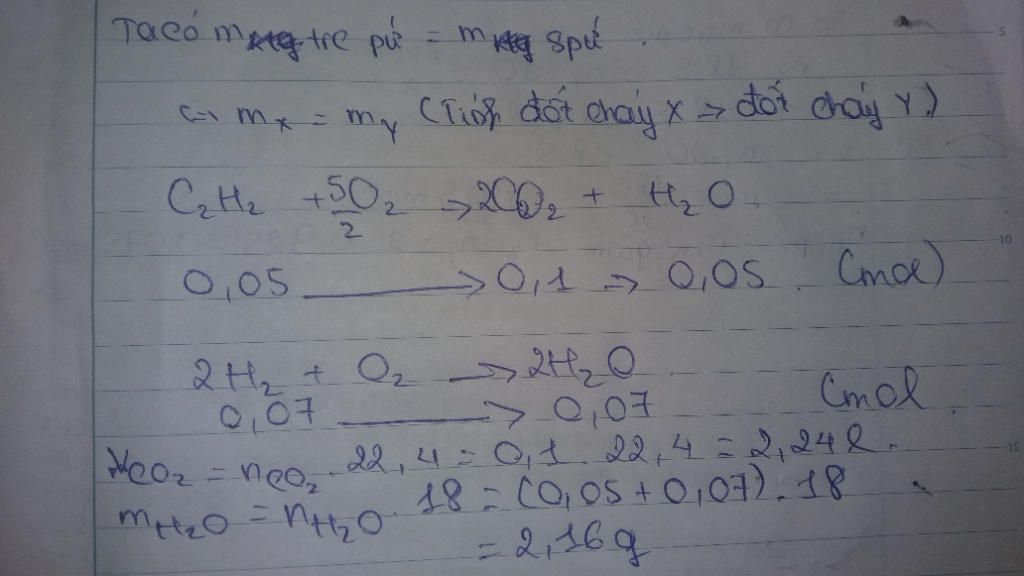 Ta có m trc pứ = m spứ.
<=> mX = mY (Tính đốt cháy X → đốt cháy Y)
C2H2 + 5/2 O2 → 2CO2 + H2O
0,05 → 0,1 → 0,05 (mol)
2H2 + O2 → 2H2O
0,07 → 0,07 (mol
VCO2 = nCO2 . 22,4 = 0,1 . 22,4 = 2,24 l.
mH2O = nH2O . 18 = (0,05 + 0,07) . 18
= 2,16 g
5
10
15